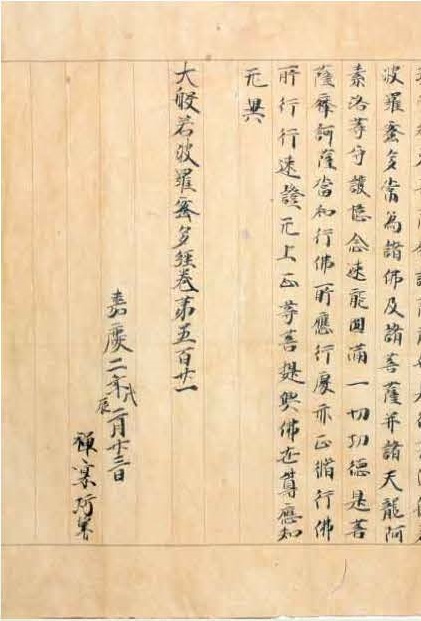 波羅蜜多常為諸佛及諸菩薩并諸天龍阿
素洛等守護憶念速能圓滿一切功德是菩
薩摩訶薩當知行佛所應行處亦正脩行佛
所行行速證无上正等菩提與佛世尊應知
无異
大般若波羅蜜多經卷第五百廿一
嘉慶二年戊辰二月廿三日